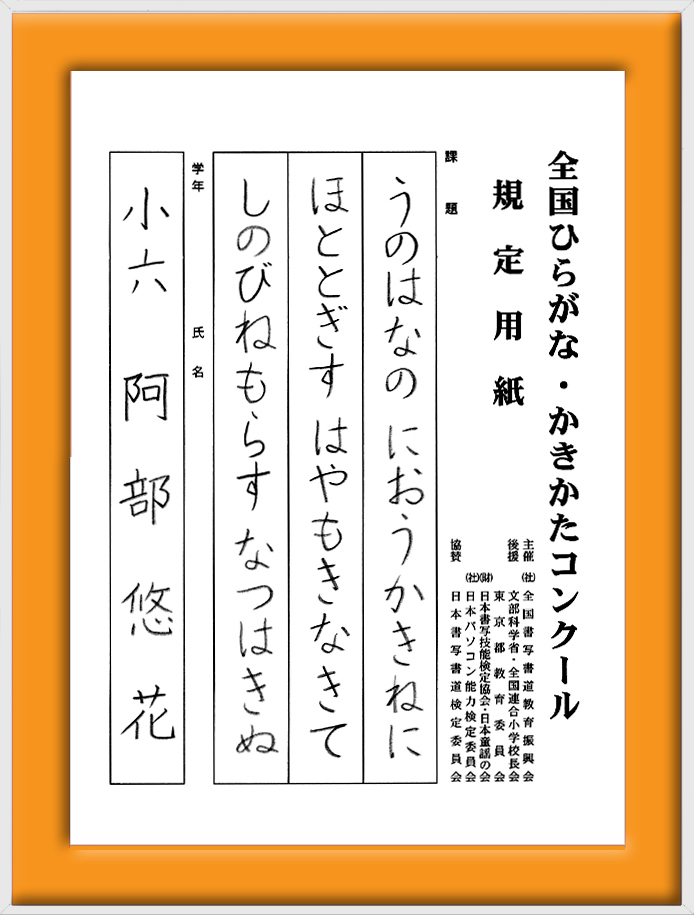 全国ひらがな・かきかたコンクール
規定用紙
主催 (社)全国書写書道教育振興会
後援 文部科学省・全国連合小学校長会
東京都教育委員会
(財)日本書写技能検定協会・日本童謡の会
(社)日本パソコン能力検定委員会
協賛 日本書写書道検定委員会
課題
うのはなの におうかきねに
ほととぎす はやもきなきて
しのびねもらす なつはきぬ
学年 氏名
小六 阿部悠花